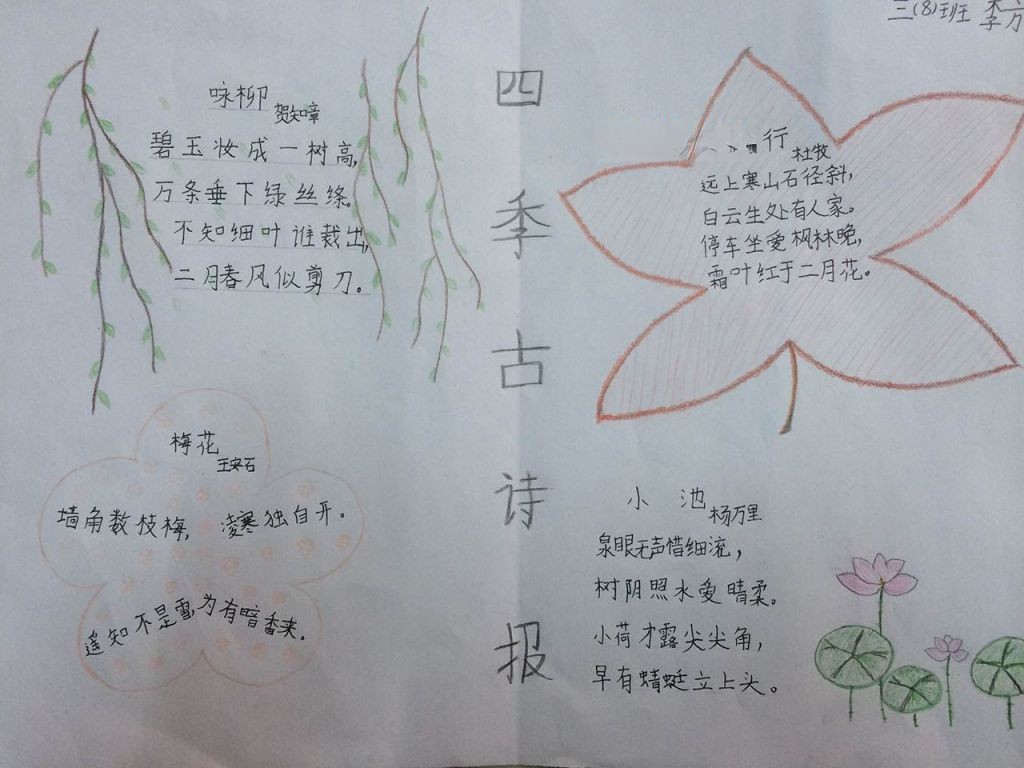 三(8)班
四季古诗报
咏柳
贺知章
碧玉妆成一树高,
万条垂下绿丝绦。
不知细叶谁裁出,
二月春风似剪刀。
行
杜牧
远上寒山石径斜,
白云生处有人家。
停车坐爱枫林晚,
霜叶红于二月花。
梅花
王安石
墙角数枝梅, 凌寒独自开。
遥知不是雪为有暗香来。
小池
杨万里
泉眼无声惜细流,
树阴照水爱晴柔。
小荷才露尖尖角,
早有蜻蜓立上头。